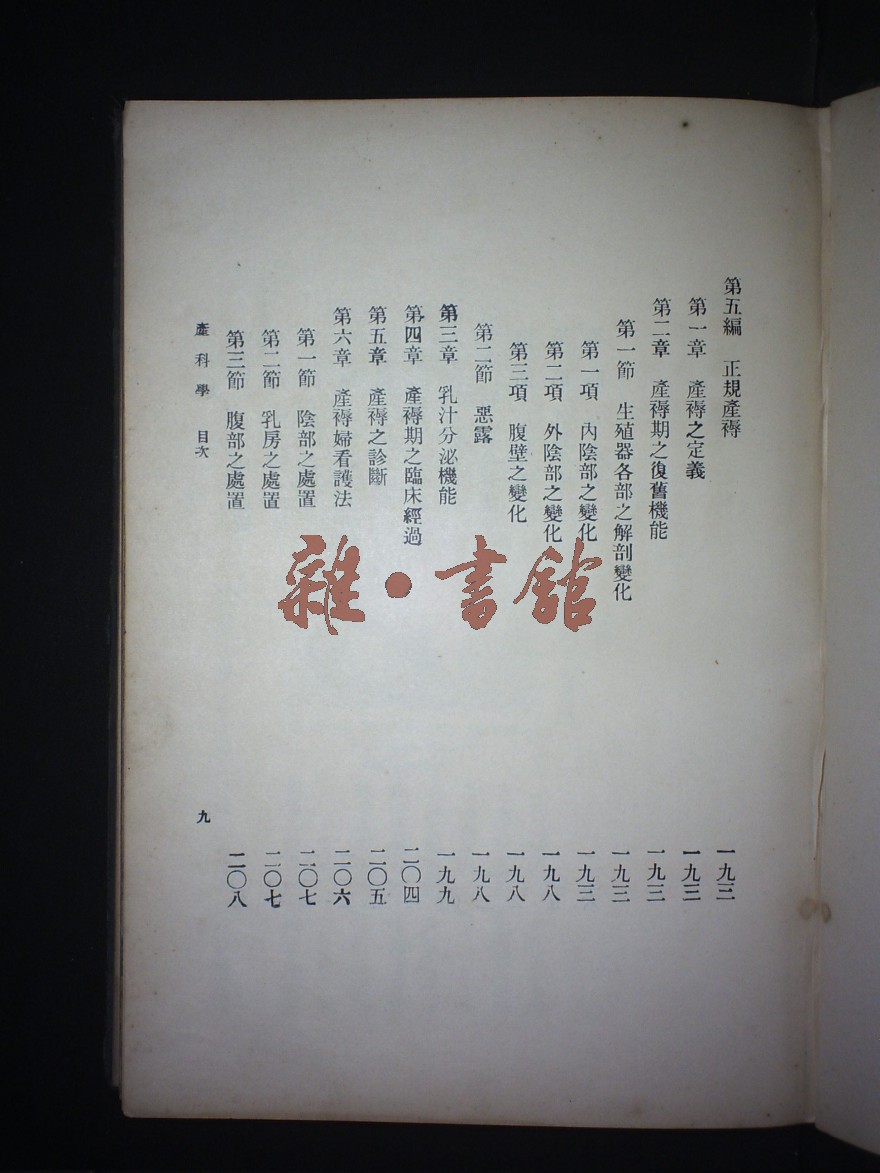 第五編　正規產褥　一九三
第一章　產褥之定義　一九三
第二章　產褥期之復舊機能　一九三
第一節　生殖器各部之解剖變化　一九三
第一項　內陰部之變化　一九三
第二項　外陰部之變化　一九八
第三項　腹壁之變化　一九八
第二節　惡露　一九八
第三章　乳汁分泌機能　一九九
第四章　產褥期之臨床經過　二〇四
第五章　產褥之診斷　二〇五
第六章　產褥婦看護法　二〇六
第一節　陰部之處置　二〇七
第二節　乳房之處置　二〇七
第三節　腹部之處置　二〇八
產科學　目次　九
雜·書館